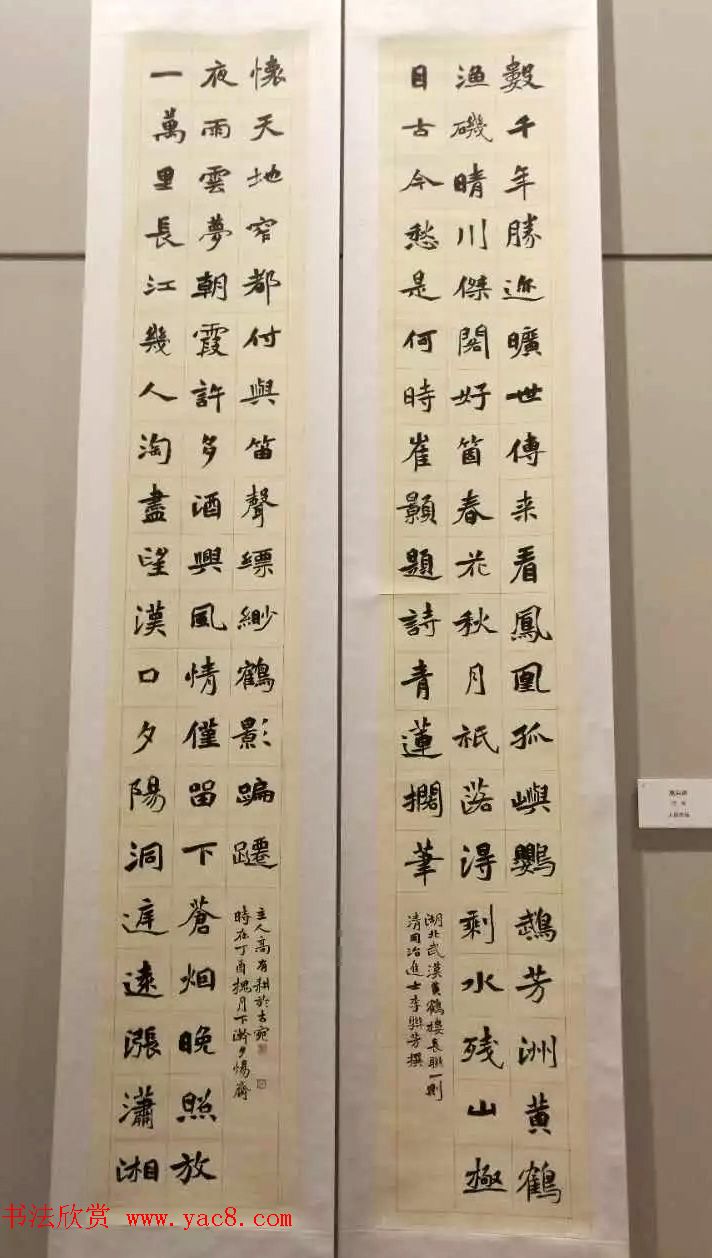 數千年勝迹曠世傳来看鳳凰孤嶼鸚鵡芳洲黄鶴
渔磯晴川傑閣好箇春花秋月祇落得剩水残山極
目古今愁是何時崔顥題詩青蓮擱筆
湖北武漢黄鶴樓長聯一則
清同治進士李聯芳撰
一萬里長江幾人淘盡望漢口夕陽洞庭遠漲瀟湘
夜雨雲夢朝霞許多酒興風情僅留下蒼烟晚照放
懷天地窄都付與笛聲縹緲鶴影蹁躚
時在丁酉槐月下澣夕惕齋
主人高有耕於古宛
书法欣赏 www.yac8.com